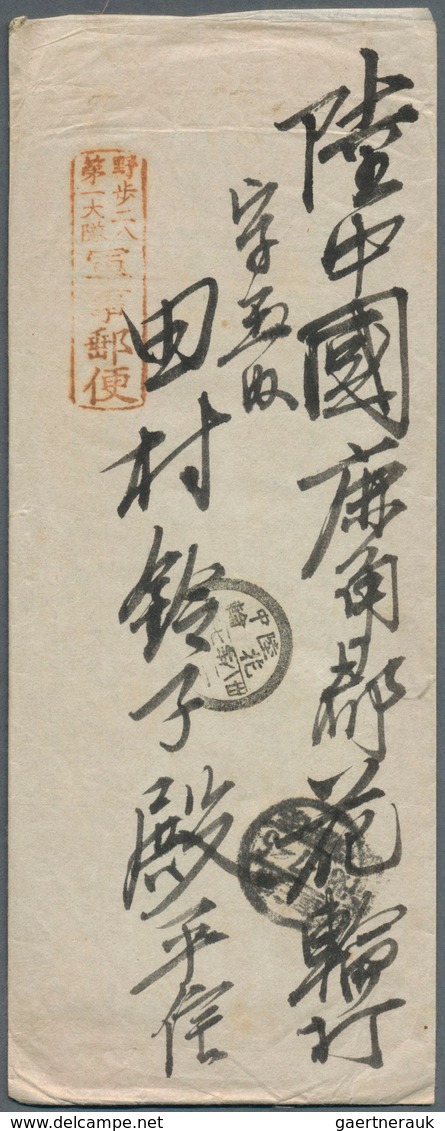 陸中國鹿角郡花輪町
字五収
田村鈴子殿平信
野歩二八
第一大隊
軍事郵便
陸中
花輪
gaertnerauk